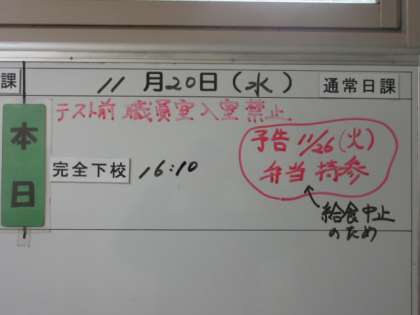 課 11月20日(水) 通常日課
テスト前 職員室入室禁止
本日
完全下校 16:10
予告 11/26(火)
弁当持参
給食中止
のため